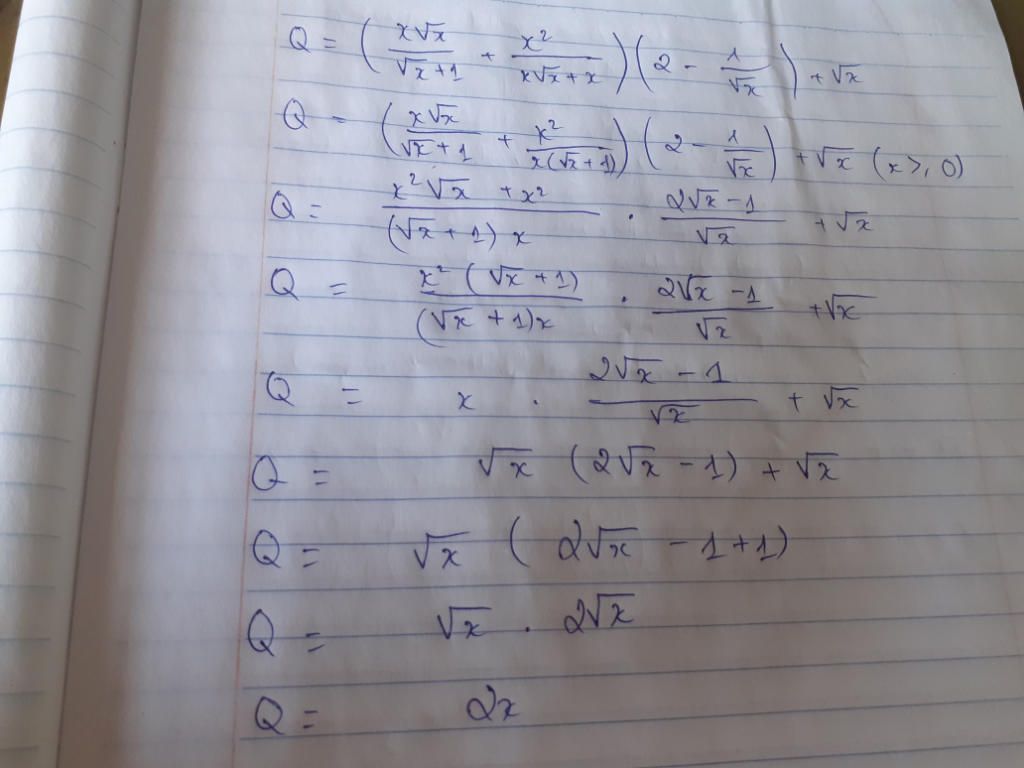 Q = ( x√x / (√x + 1) + x² / (x√x + x) ) ( 2 - 1/√x ) + √x
Q = ( x√x / (√x + 1) + x² / (x(√x + 1)) ) ( 2 - 1/√x ) + √x (x ⩾ 0)
Q = (x²√x + x²) / ((√x + 1) x) . (2√x - 1) / √x + √x
Q = x² (√x + 1) / ((√x + 1)x) . (2√x - 1) / √x + √x
Q = x . (2√x - 1) / √x + √x
Q = √x (2√x - 1) + √x
Q = √x ( 2√x - 1 + 1)
Q = √x . 2√x
Q = 2x